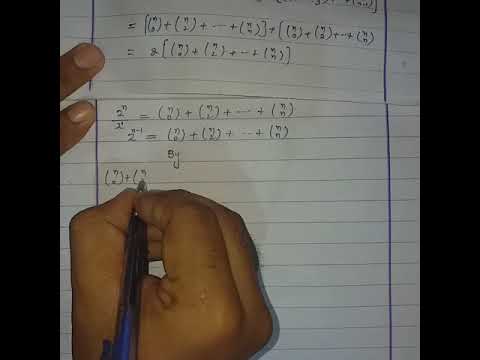 = [(n 0) + (n 2) + ... + (n n)] + [(n 0) + (n 2) + ... + (n n)
= 2 [(n 0) + (n 2) + ... + (n n)]
2^n / 2^1 = (n 0) + (n 2) + ... + (n n)
2^n-1 = (n 0) + (n 2) + ... + (n n)
By
(n 0) + (n